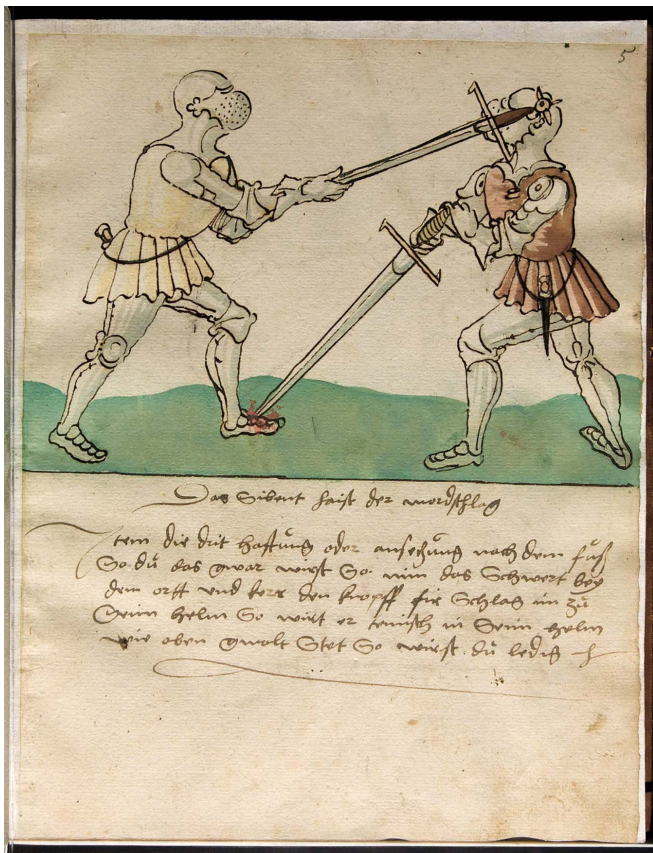 5
Das Sibent haist der mordschlag
Item die drit hafftung oder ansetzung nach dem fuß
So du das gwar wirst So nim das Schwert bey
dem ortt und kerr den knopff für Schlag im zu
Seim helm So wirt er temisch in Seim helm
wie oben gmolt Stet So wirst du ledig